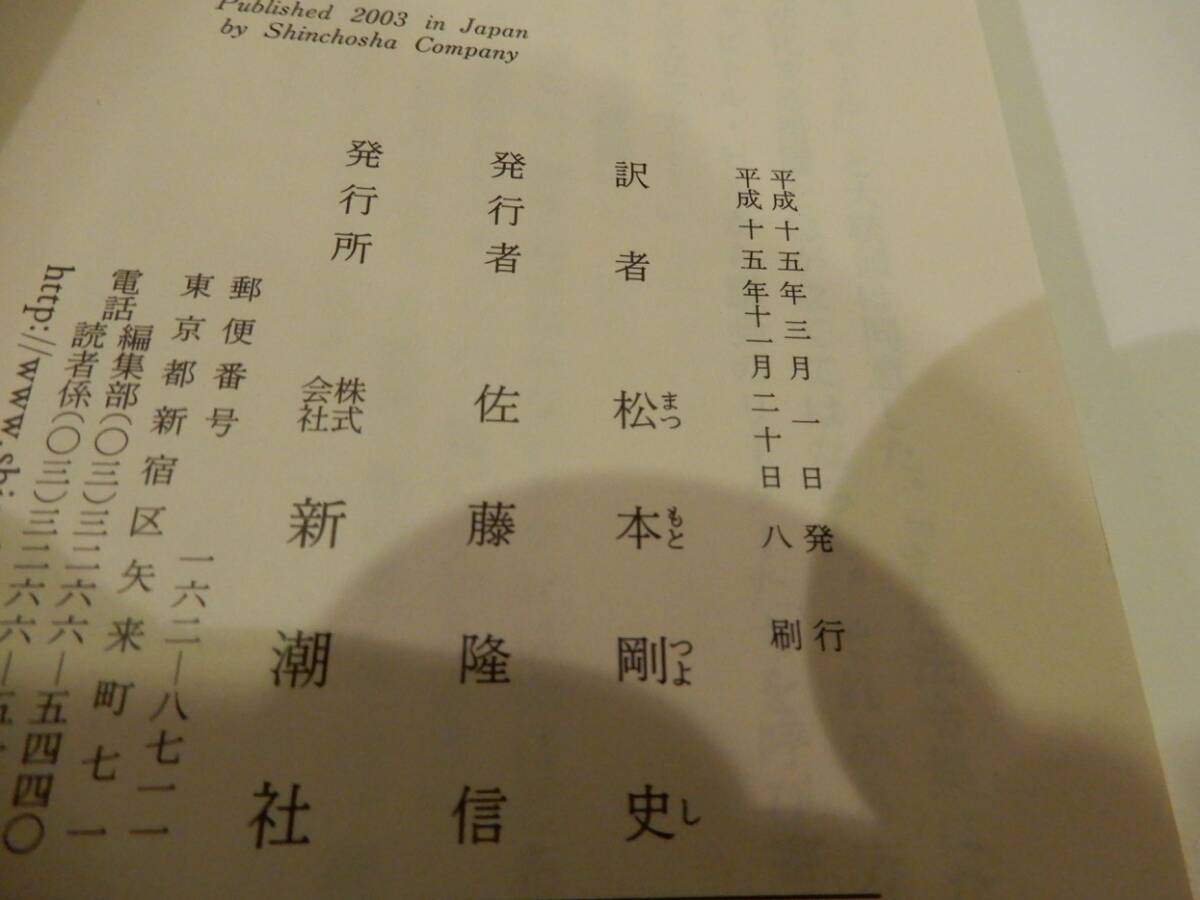 Published 2003 in Japan
by Shinchosha Company
平成十五年三月 一日発行
平成十五年十一月二十日八刷
訳者 松本剛史
まつ もと つよ し
発行者 佐藤隆信
発行所 株式会社 新潮社
郵便番号 一六二―八七一一
東京都新宿区矢来町七一
電話 編集部(〇三)三二六六―五四四〇
読者係(〇三)三二六六―五
http://www.sh